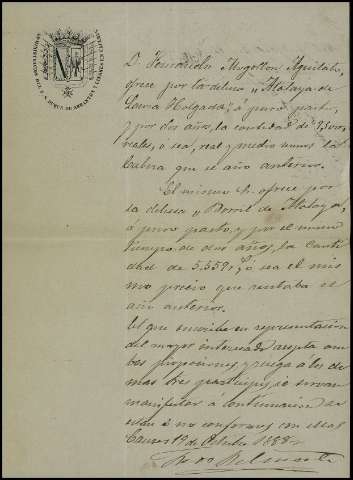 D. Fernando Mogollon Aguilar,
ofrece por la dehesa "Atalaya de
Loma Holgada", á puro pasto,
y por dos años, la cantidad de
reales, ó sea, real y medio menos
cabeza que el año anterior.
El mismo Sr. ofrece por
la dehesa "Borril de Atalaya,
á puro pasto, y por el mismo
tiempo de dos años, la canti-
dad de 5.559 ó sea el mis
mo precio que rentaba el
año anterior.
El que suscribe en representación
del mayor interesado acepta am
bas proposiciones y ruega á los de
mas tres participes, se sirvan
manifestar á continuacion si
estan ó no conformes con ellas
Caceres 19 de Octubre 1888
Belmonte